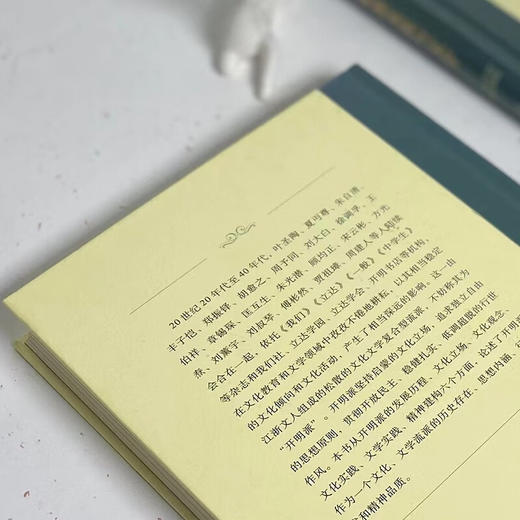 20世纪20年代至40年代，叶圣陶、夏丏尊、朱自清、
丰子恺、郑振铎、胡愈之、周予同、刘大白、徐调孚、王
伯祥、章锡琛、匡互生、朱光潜、顾均正、宋云彬、方光
焘、刘薰宇、刘叔琴、傅彬然、贾祖璋、周建人等人陆续
会合在一起，依托《我们》《立达》《一般》《中学生》
等杂志和我们社、立达学园、立达学会、开明书店等机构，
在文化教育和文学领域中孜孜不倦地耕耘，以其相当稳定
的文化倾向和文化活动，产生了相当深远的影响。这一由
江浙文人组成的松散的文化文学复合型流派，不妨称其为
“开明派”。开明派坚持启蒙的文化立场，追求独立自由
的思想原则，贯彻开放民主、稳健扎实、低调超脱的行世
作风。本书从开明派的发展历程、文化立场、文化观念
文化实践、文学实践、精神建构六个方面，论述了开明
作为一个文化、文学流派的历史存在、思想内涵
和精神品质。